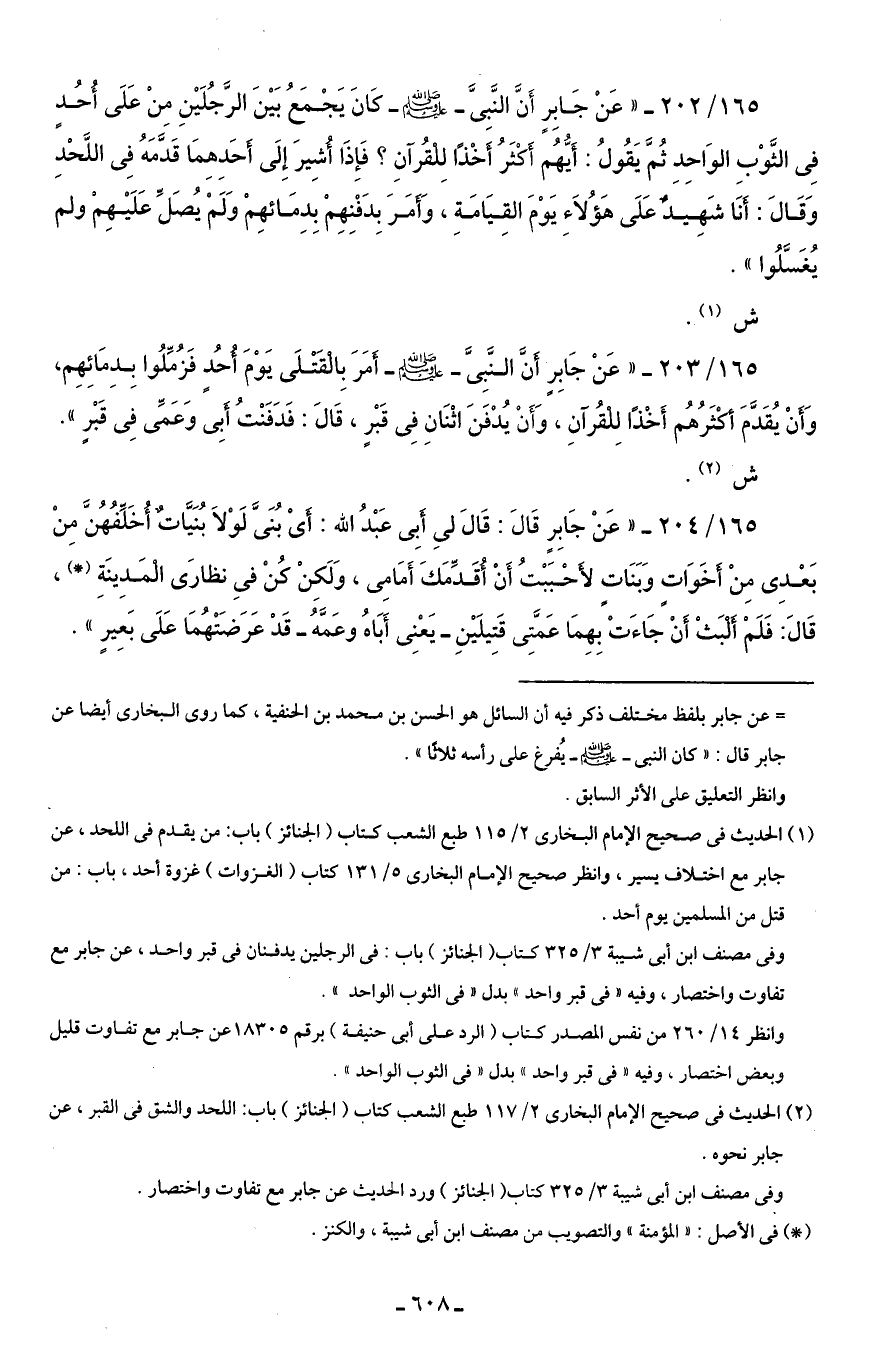 ١٦٥/ ٢٠٢ ـ « عَنْ جَـابِرٍ أَنَّ النَّبِىَّ ـ ﷺ ـ كَانَ يَجْـمَعُ بَيْنَ الرَّجُلَيْنِ مِنْ عَلَى أُحُـدٍ
فِى الثَّوْبِ الوَاحِدِ ثُمَّ يَقُولُ : أَيُّهُم أَكْثَرُ أَخْذًا لِلْقُرآنِ ؟ فَإِذَا أُشِيرَ إِلَى أَحَدِهِمَا قَدَّمَهُ فِى اللَّحْدِ
وَقَـالَ : أَنَا شَهِـيـدٌ عَلَى هَؤُلاَءِ يَوْمَ القِـيَامَـةِ ، وَأَمَـرَ بِدَفْنِهِمْ بِدِمَـائِهِمْ وَلَمْ يُصَلِّ عَلَيْـهِمْ ولم
يُغَسَّلُوا » .
ش (١) .
١٦٥/ ٢٠٣ ـ « عَنْ جَابِرٍ أَنَّ الـنَّبِىَّ ـ ﷺ ـ أَمَرَ بِالْقَتْـلَى يَوْمَ أُحُدٍ فَزُمِّلُوا بِـدِمَائِهِم،
وَأَنْ يُقَدَّمَ أَكْثَرُهُم أَخْذًا لِلْقُرآنِ ، وَأَنْ يُدْفَنَ اثْنَانِ فِى قَبْرٍ ، قَالَ : فَدَفَنْتُ أَبِى وَعَمِّى فِى قَبْرٍ ».
ش (٢) .
١٦٥/ ٢٠٤ ـ « عَنْ جَابِرٍ قَالَ : قَالَ لِى أَبِى عَبْدُ الله : أَىْ بُنَىَّ لَوْلاَ بُنَيَّاتٌ أُخَلِّفُهُنَّ مِنْ
بَعْـدِى مِنْ أَخَوَاتٍ وَبَنَاتٍ لأَحْـبَبْتُ أَنْ أُقَدِّمَكَ أَمَامِى ، وَلَكِنْ كُنْ فِى نظارَى الْمَـدِينَةِ (*) ،
قَالَ: فَلَمْ أَلْبَثْ أَنْ جَاءَتْ بِهِمَا عَمَّتِى قَتِيلَيْنِ ـ يَعْنِى أَبَاهُ وعَمَّهُ ـ قَدْ عَرَضَتْهُمَا عَلَى بَعِيرٍ » .
= عن جابر بلفظ مختلف ذكر فيه أن السائل هو الحسن بن محمد بن الحنفية ، كما روى البخارى أيضا عن
جابر قال : « كان النبى ـ ﷺ ـ يُفرغ على رأسه ثلاثًا » .
وانظر التعليق على الأثر السابق .
(١) الحديث فى صحيح الإمام البخارى ٢/ ١١٥ طبع الشعب كتاب ( الجنائز ) باب: من يقدم فى اللحد ، عن
جابر مع اختلاف يسير ، وانظر صحيح الإمام البخارى ٥/ ١٣١ كتاب ( الغزوات ) غزوة أحد ، باب : من
قتل من المسلمين يوم أحد .
وفى مصنف ابن أبى شيبة ٣/ ٣٢٥ كتاب( الجنائز ) باب : فى الرجلين يدفنان فى قبر واحد ، عن جابر مع
تفاوت واختصار ، وفيه « فى قبر واحد » بدل « فى الثوب الواحد » .
وانظر ١٤/ ٢٦٠ من نفس المصدر كتاب ( الرد على أبى حنيفة ) برقم ١٨٣٠٥عن جابر مع تفاوت قليل
وبعض اختصار ، وفيه « فى قبر واحد » بدل « فى الثوب الواحد » .
(٢) الحديث فى صحيح الإمام البخارى ٢/ ١١٧ طبع الشعب كتاب ( الجنائز ) باب: اللحد والشق فى القبر ، عن
جابر نحوه .
وفى مصنف ابن أبى شيبة ٣/ ٣٢٥ كتاب( الجنائز ) ورد الحديث عن جابر مع تفاوت واختصار .
(*) فى الأصل : « المؤمنة » والتصويب من مصنف ابن أبى شيبة ، والكنز .
ـ ٦٠٨ ـ